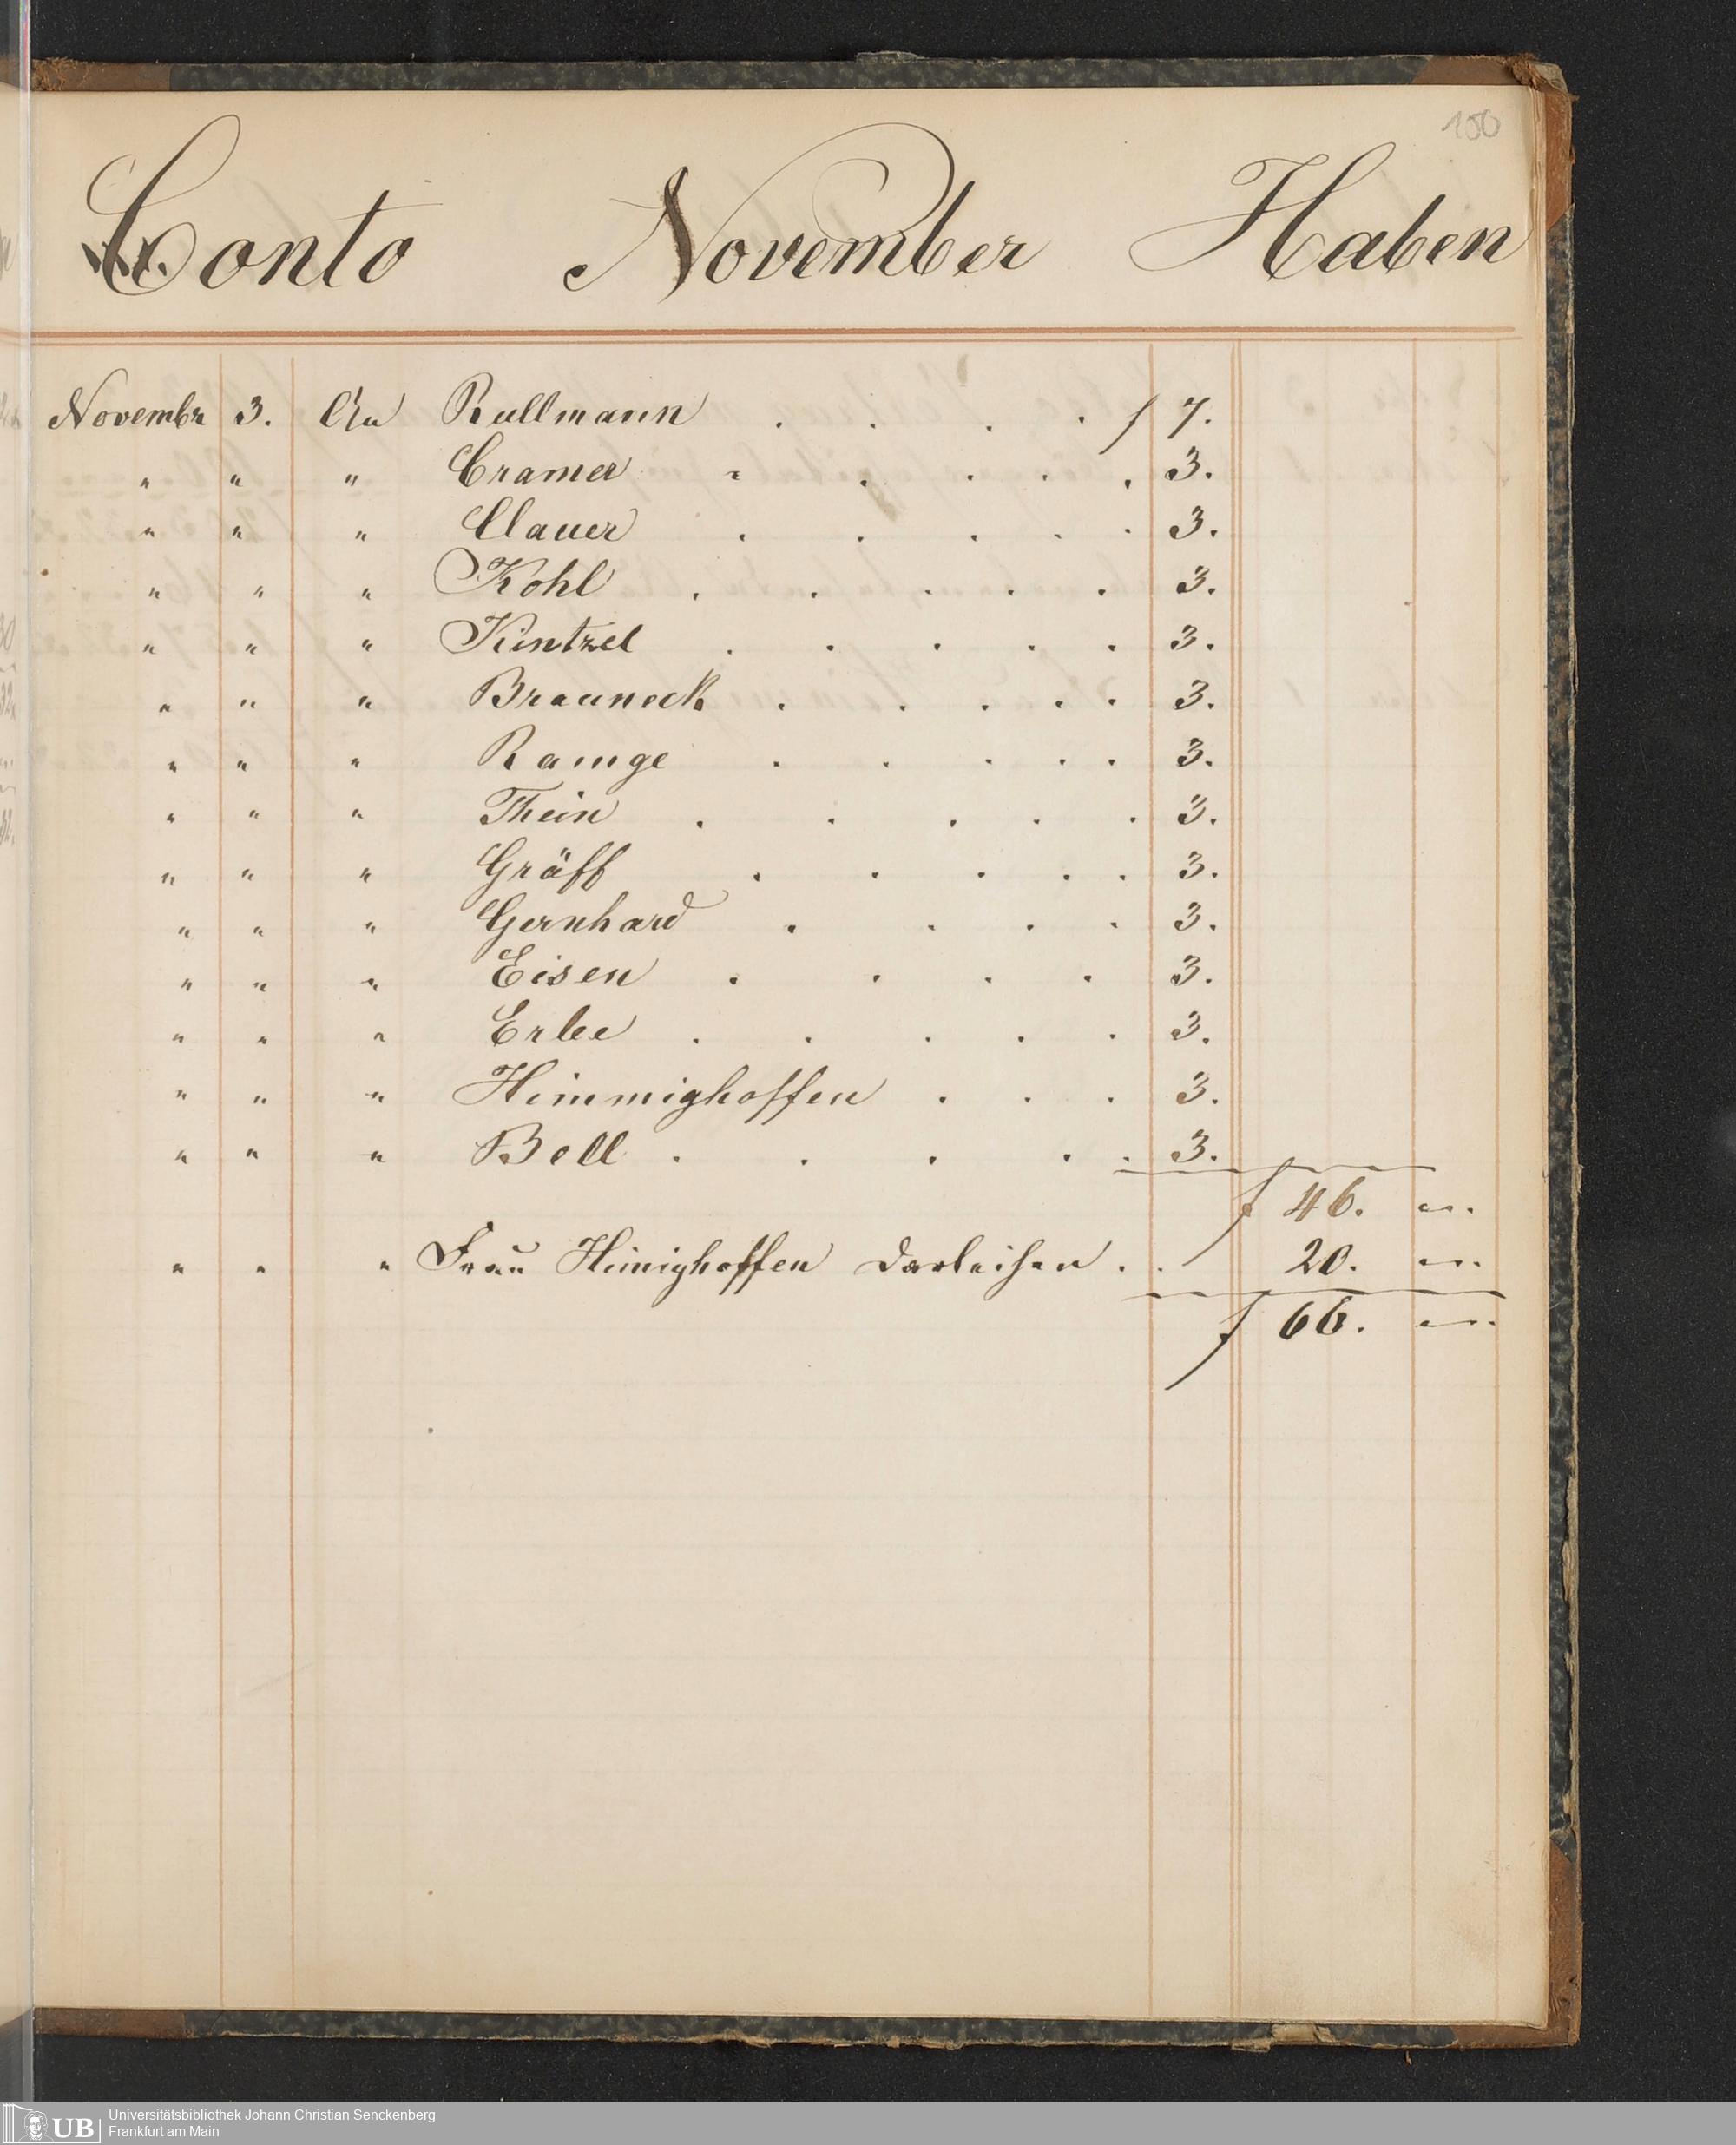 150
Conto November Haben
Novembr 3. An Rullmann . . . . f 7.
" " " Cramer . . . . . 3.
" " " Clauer . . . . . 3.
" " " Kohl . . . . . 3.
" " " Kintzel . . . . . 3.
" " " Brauneck . . . . . 3.
" " " Ramge . . . . . 3.
" " " Thein . . . . . 3.
" " " Gräff . . . . . 3.
" " " Gernhard . . . . 3.
" " " Eisen . . . . 3.
" " " Erbe . . . . . 3.
" " " Himmighoffen . . . 3.
" " " Bell . . . . . 3.
f 46. "
" " " Frau Himighoffen Darleihen . . 20. "
f 66. "
UB Universitätsbibliothek Johann Christian Senckenberg
Frankfurt am Main